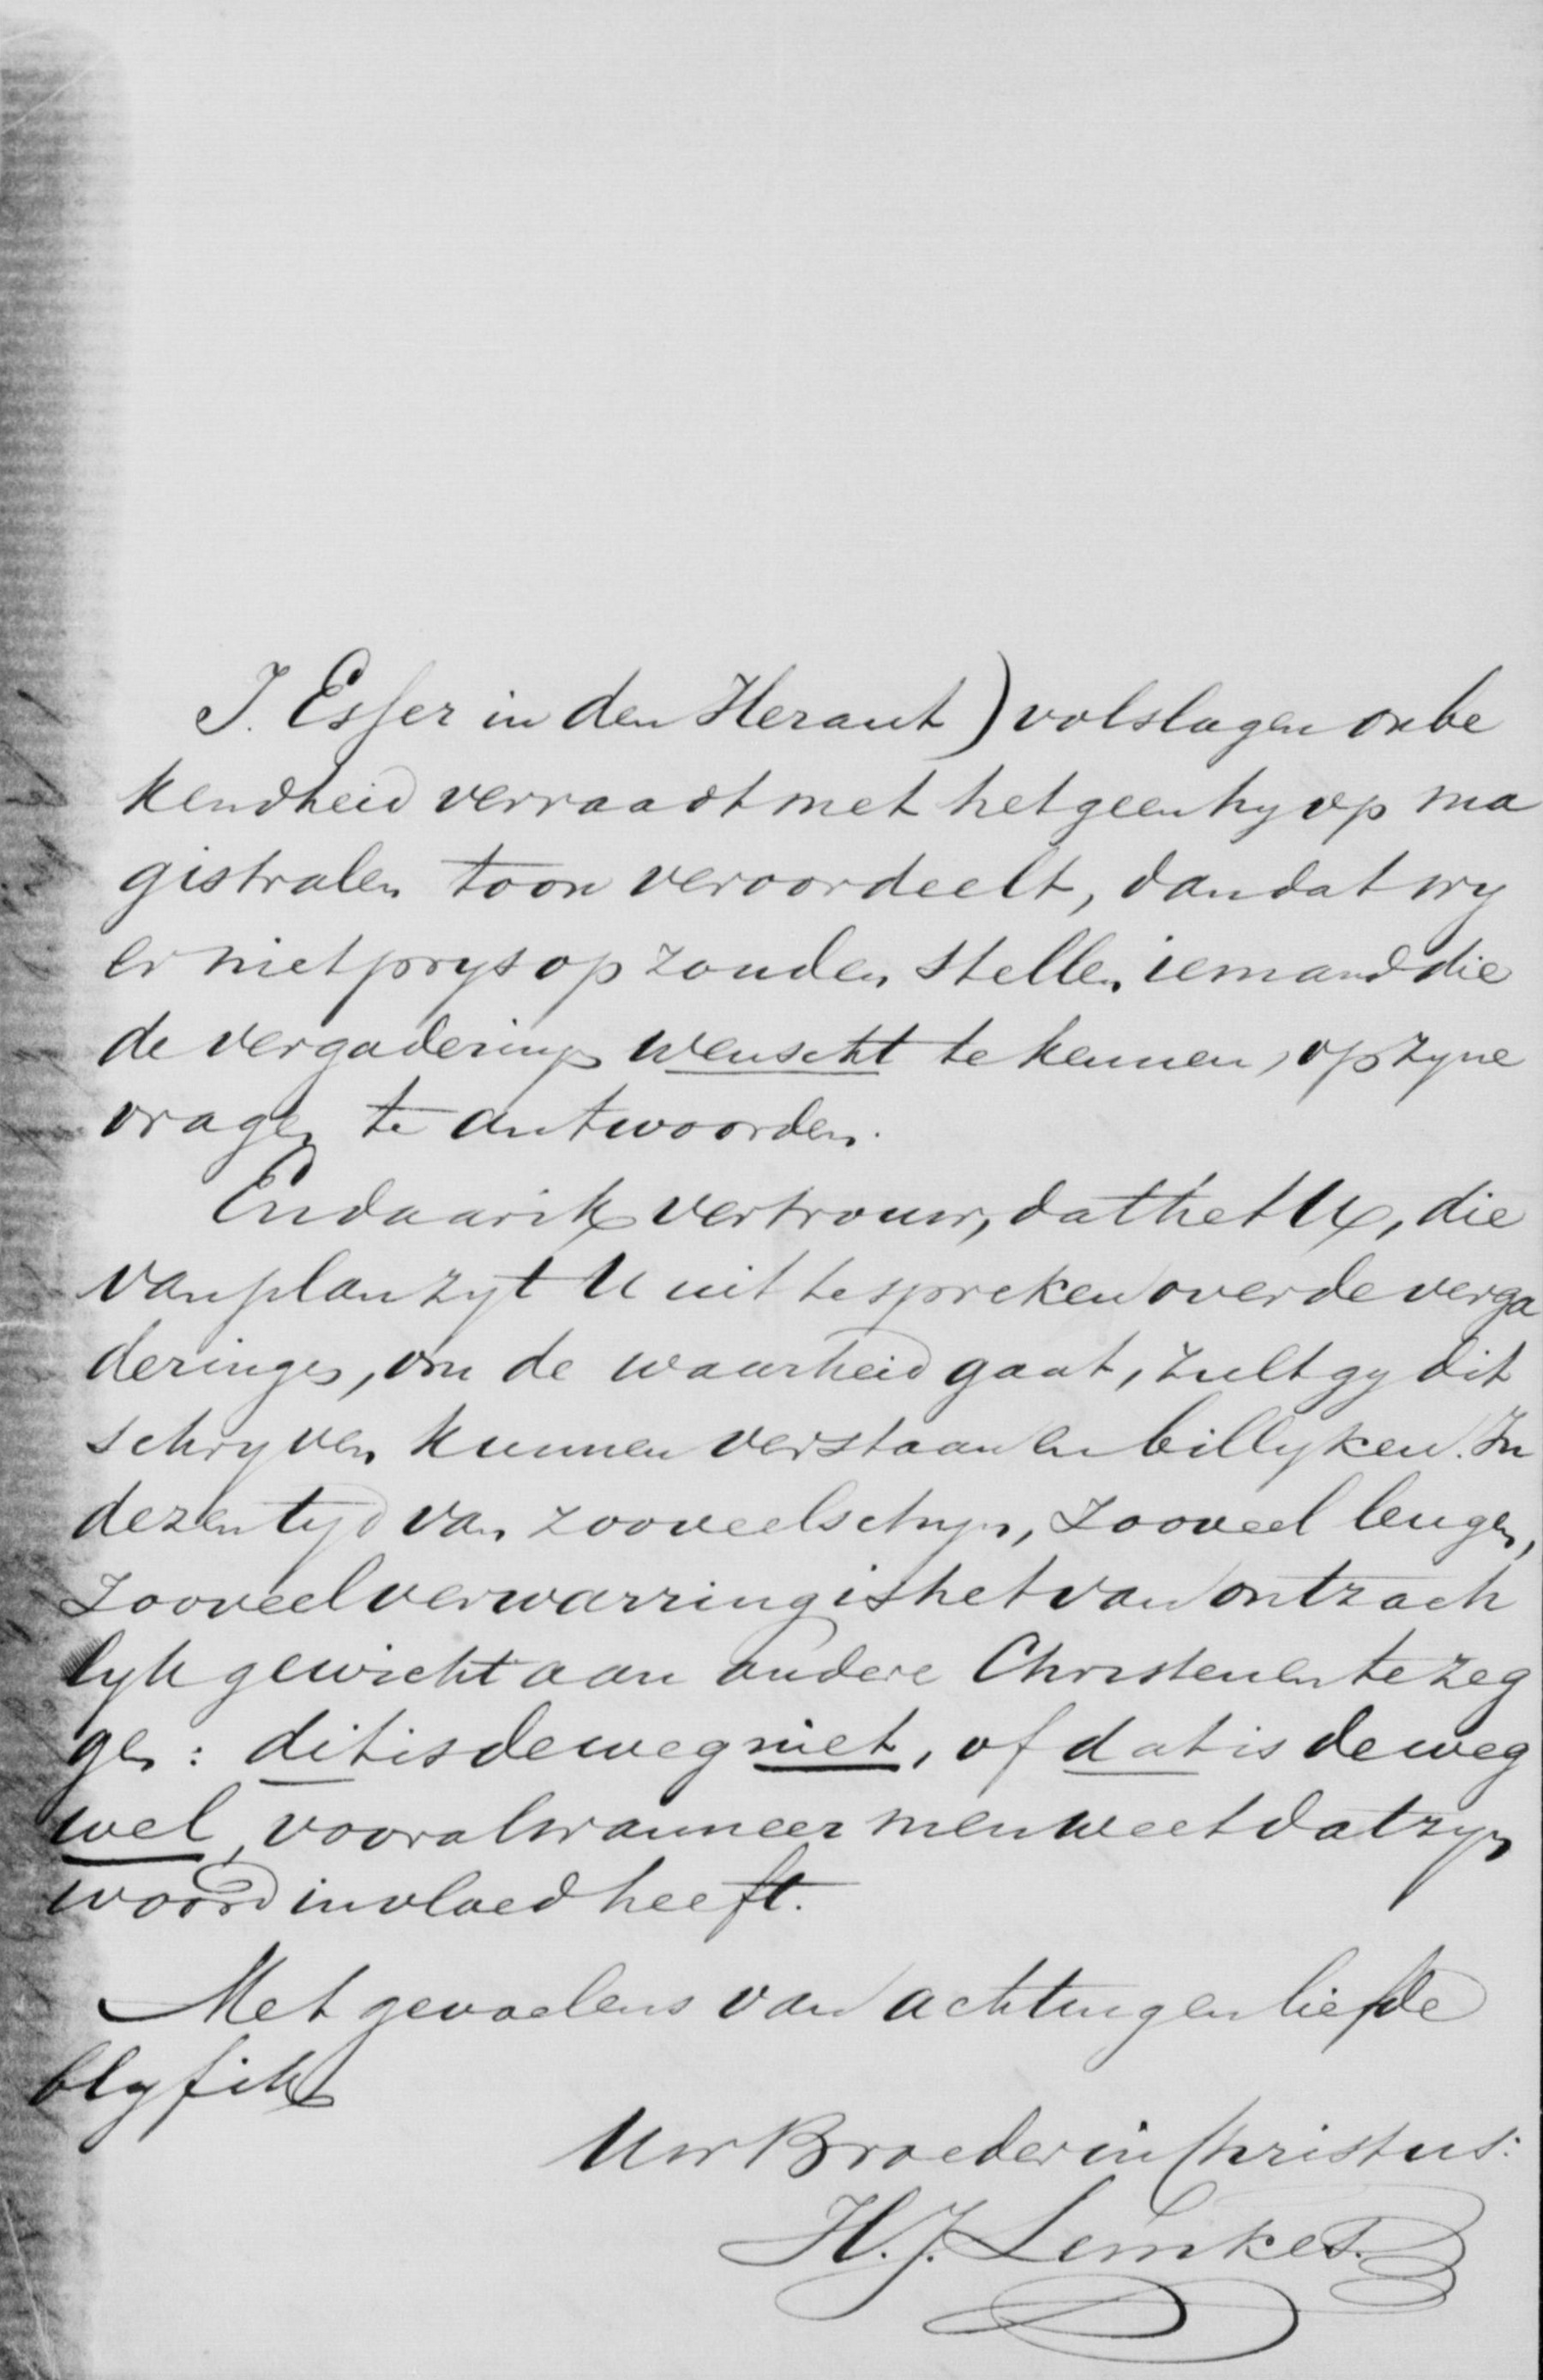 I. Esser in den Heraut) volslagen onbe
kendheid verraadt met hetgeen hy op ma
gistralen toon veroordeelt, dan dat wy
er niet prys op zouden stellen iemand die
de vergaderingen wenscht te kennen, op zyne
vragen te antwoorden.
En daar ik vertrouw, dat het U, die
van plan zyt U uit te spreken over de verga
deringen, om de waarheid gaat, zult gy dit
schryven kunnen verstaan en billyken. In
dezen tyd van zooveel schyn, zooveel leugen,
zooveel verwarring is het van ontzach
lyk gewicht aan andere Christenen te zeg
gen: dit is de weg niet, of dat is de weg
wel, vooral wanneer men weet dat zyn
woord invloed heeft.
Met gevoelens van achting en liefde
blyf ik
Uw Broeder in Christus:
H. J. Lemkes.